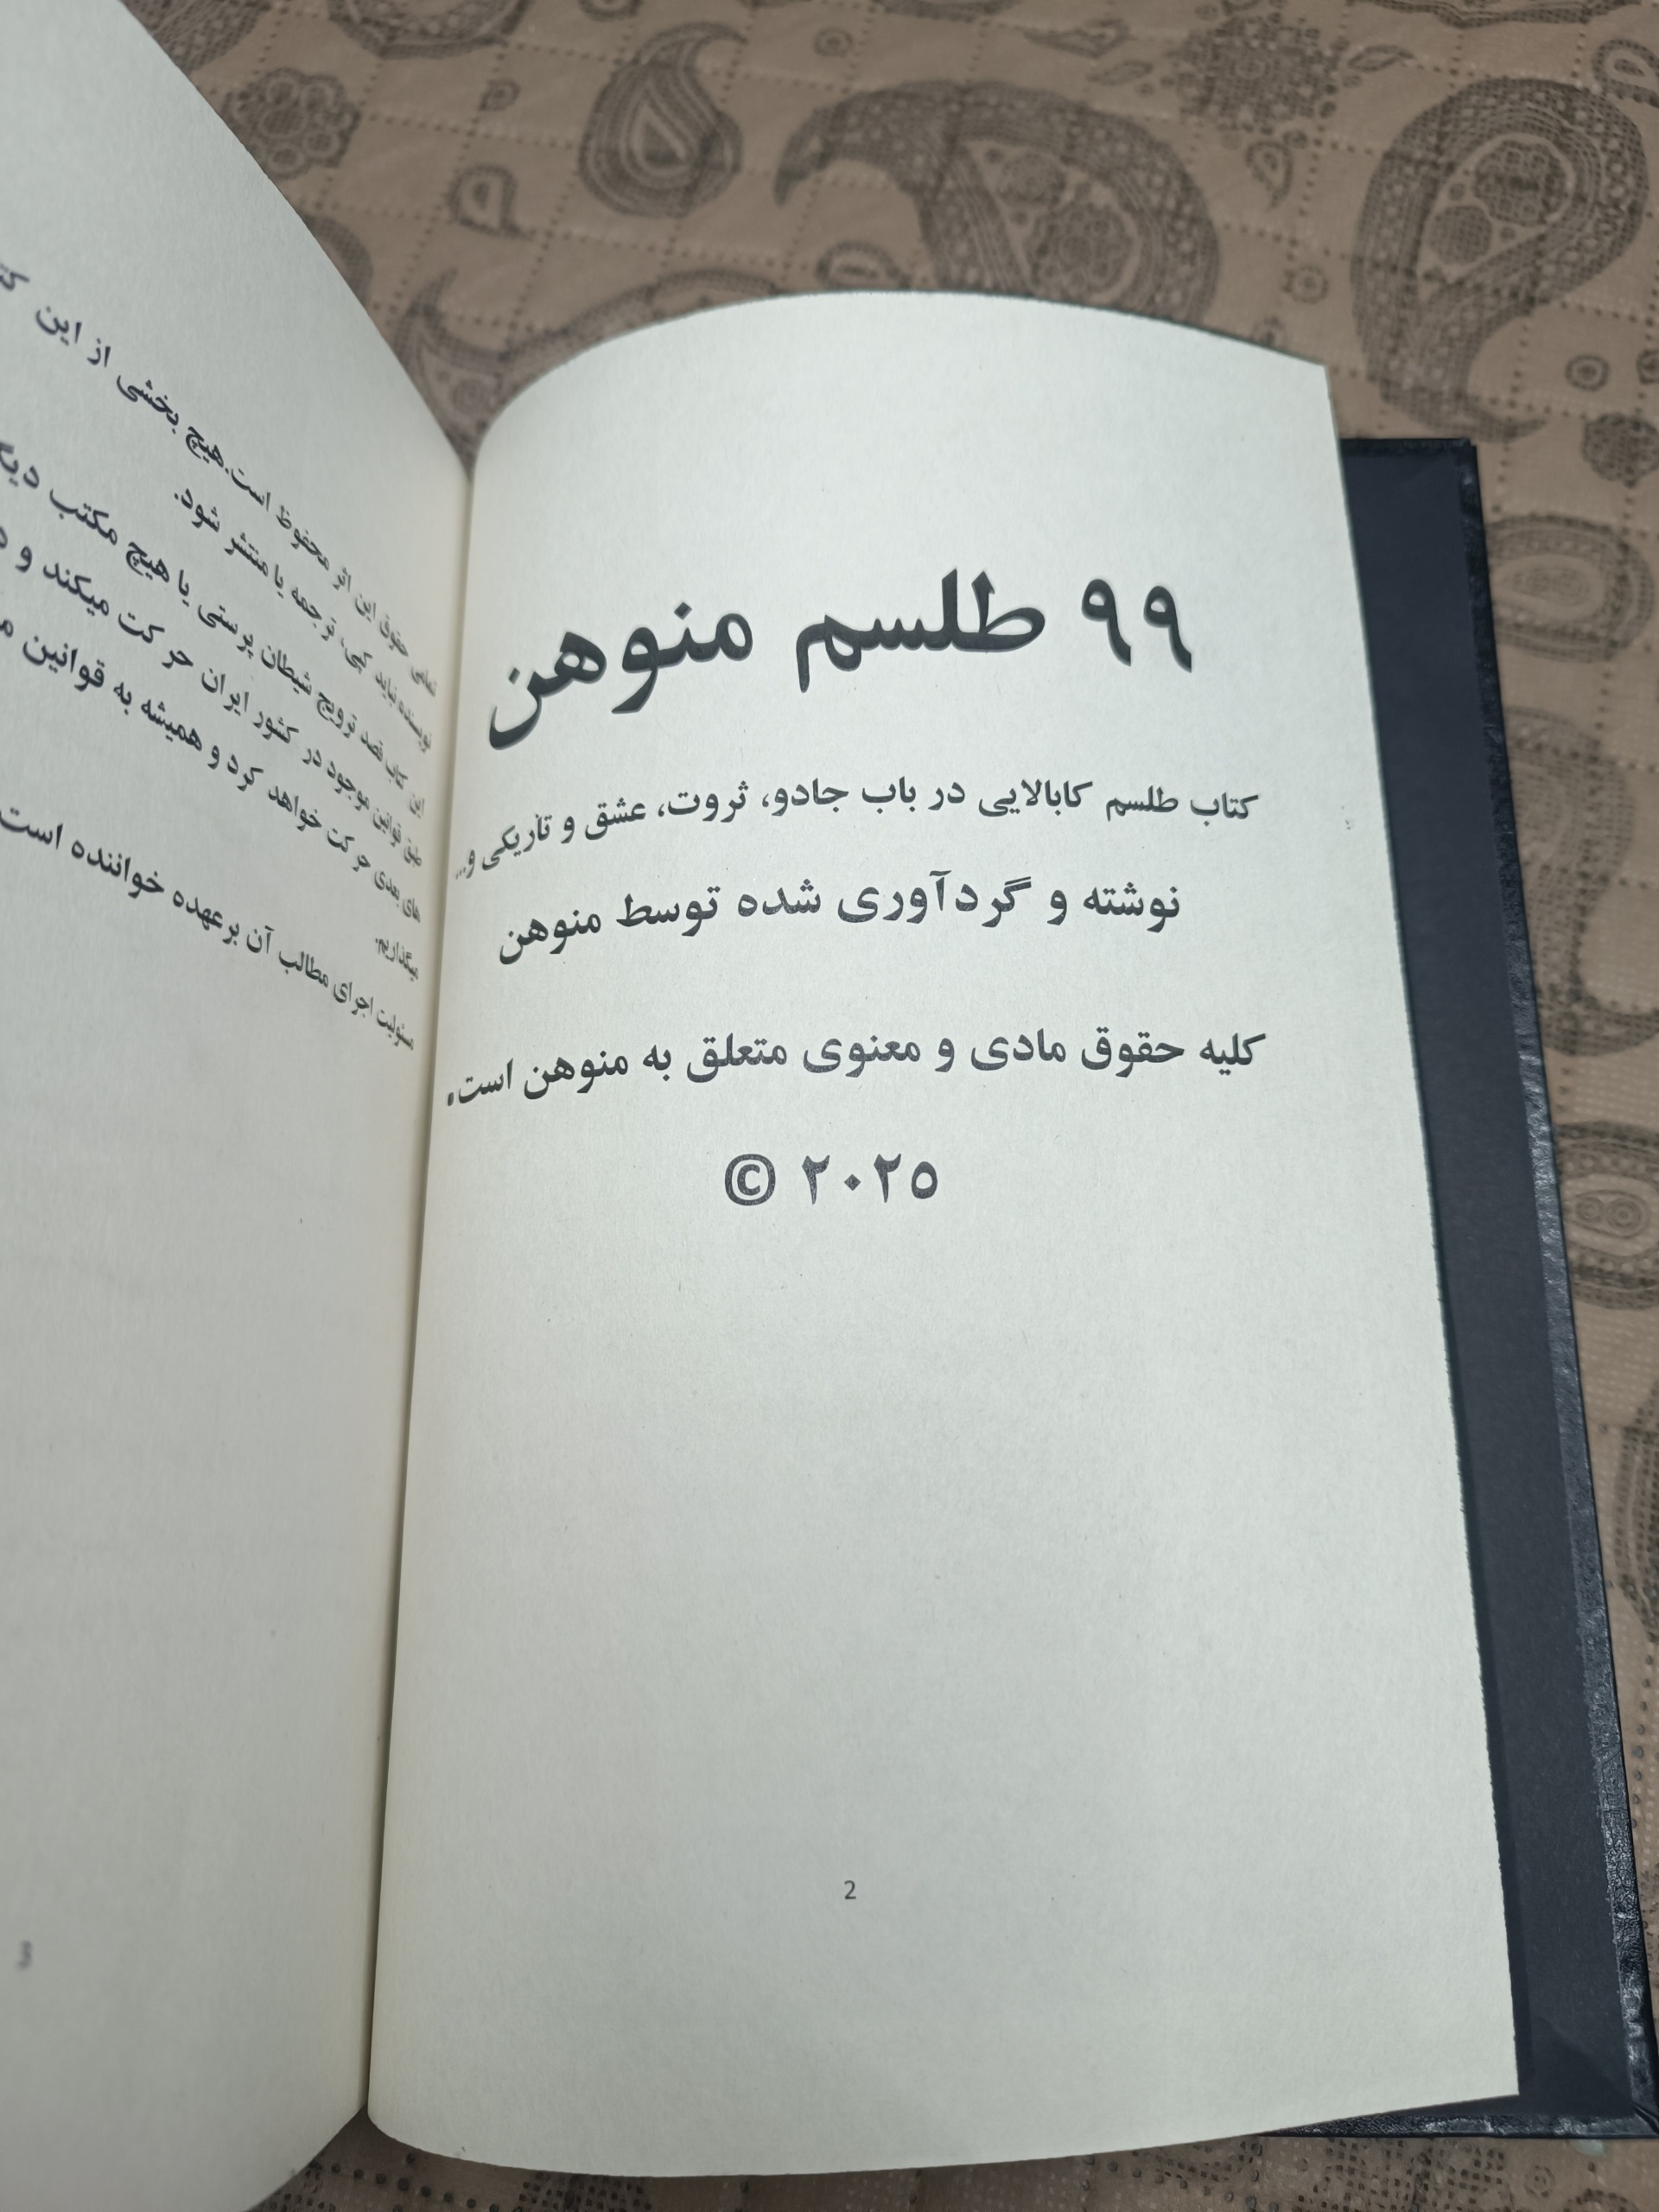 ۹۹ طلسم منوهن
کتاب طلسم کابالایی در باب جادو، ثروت، عشق و تاریکی و...
نوشته و گردآوری شده توسط منوهن
کلیه حقوق مادی و معنوی متعلق به منوهن است.
© ۲۰۲۵
2
تمامی حقوق این اثر محفوظ است.هیچ بخشی از این
نویسنده نباید کپی، ترجمه یا منتشر شود.
این کتاب قصد ترویج شیطان پرستی یا هیچ مکتب
طبق قوانین موجود در کشور ایران حرکت میکند و
های بعدی حرکت خواهد کرد و همیشه به قوانین
میگذاریم.
مسئولیت اجرای مطالب آن برعهده خواننده است
3